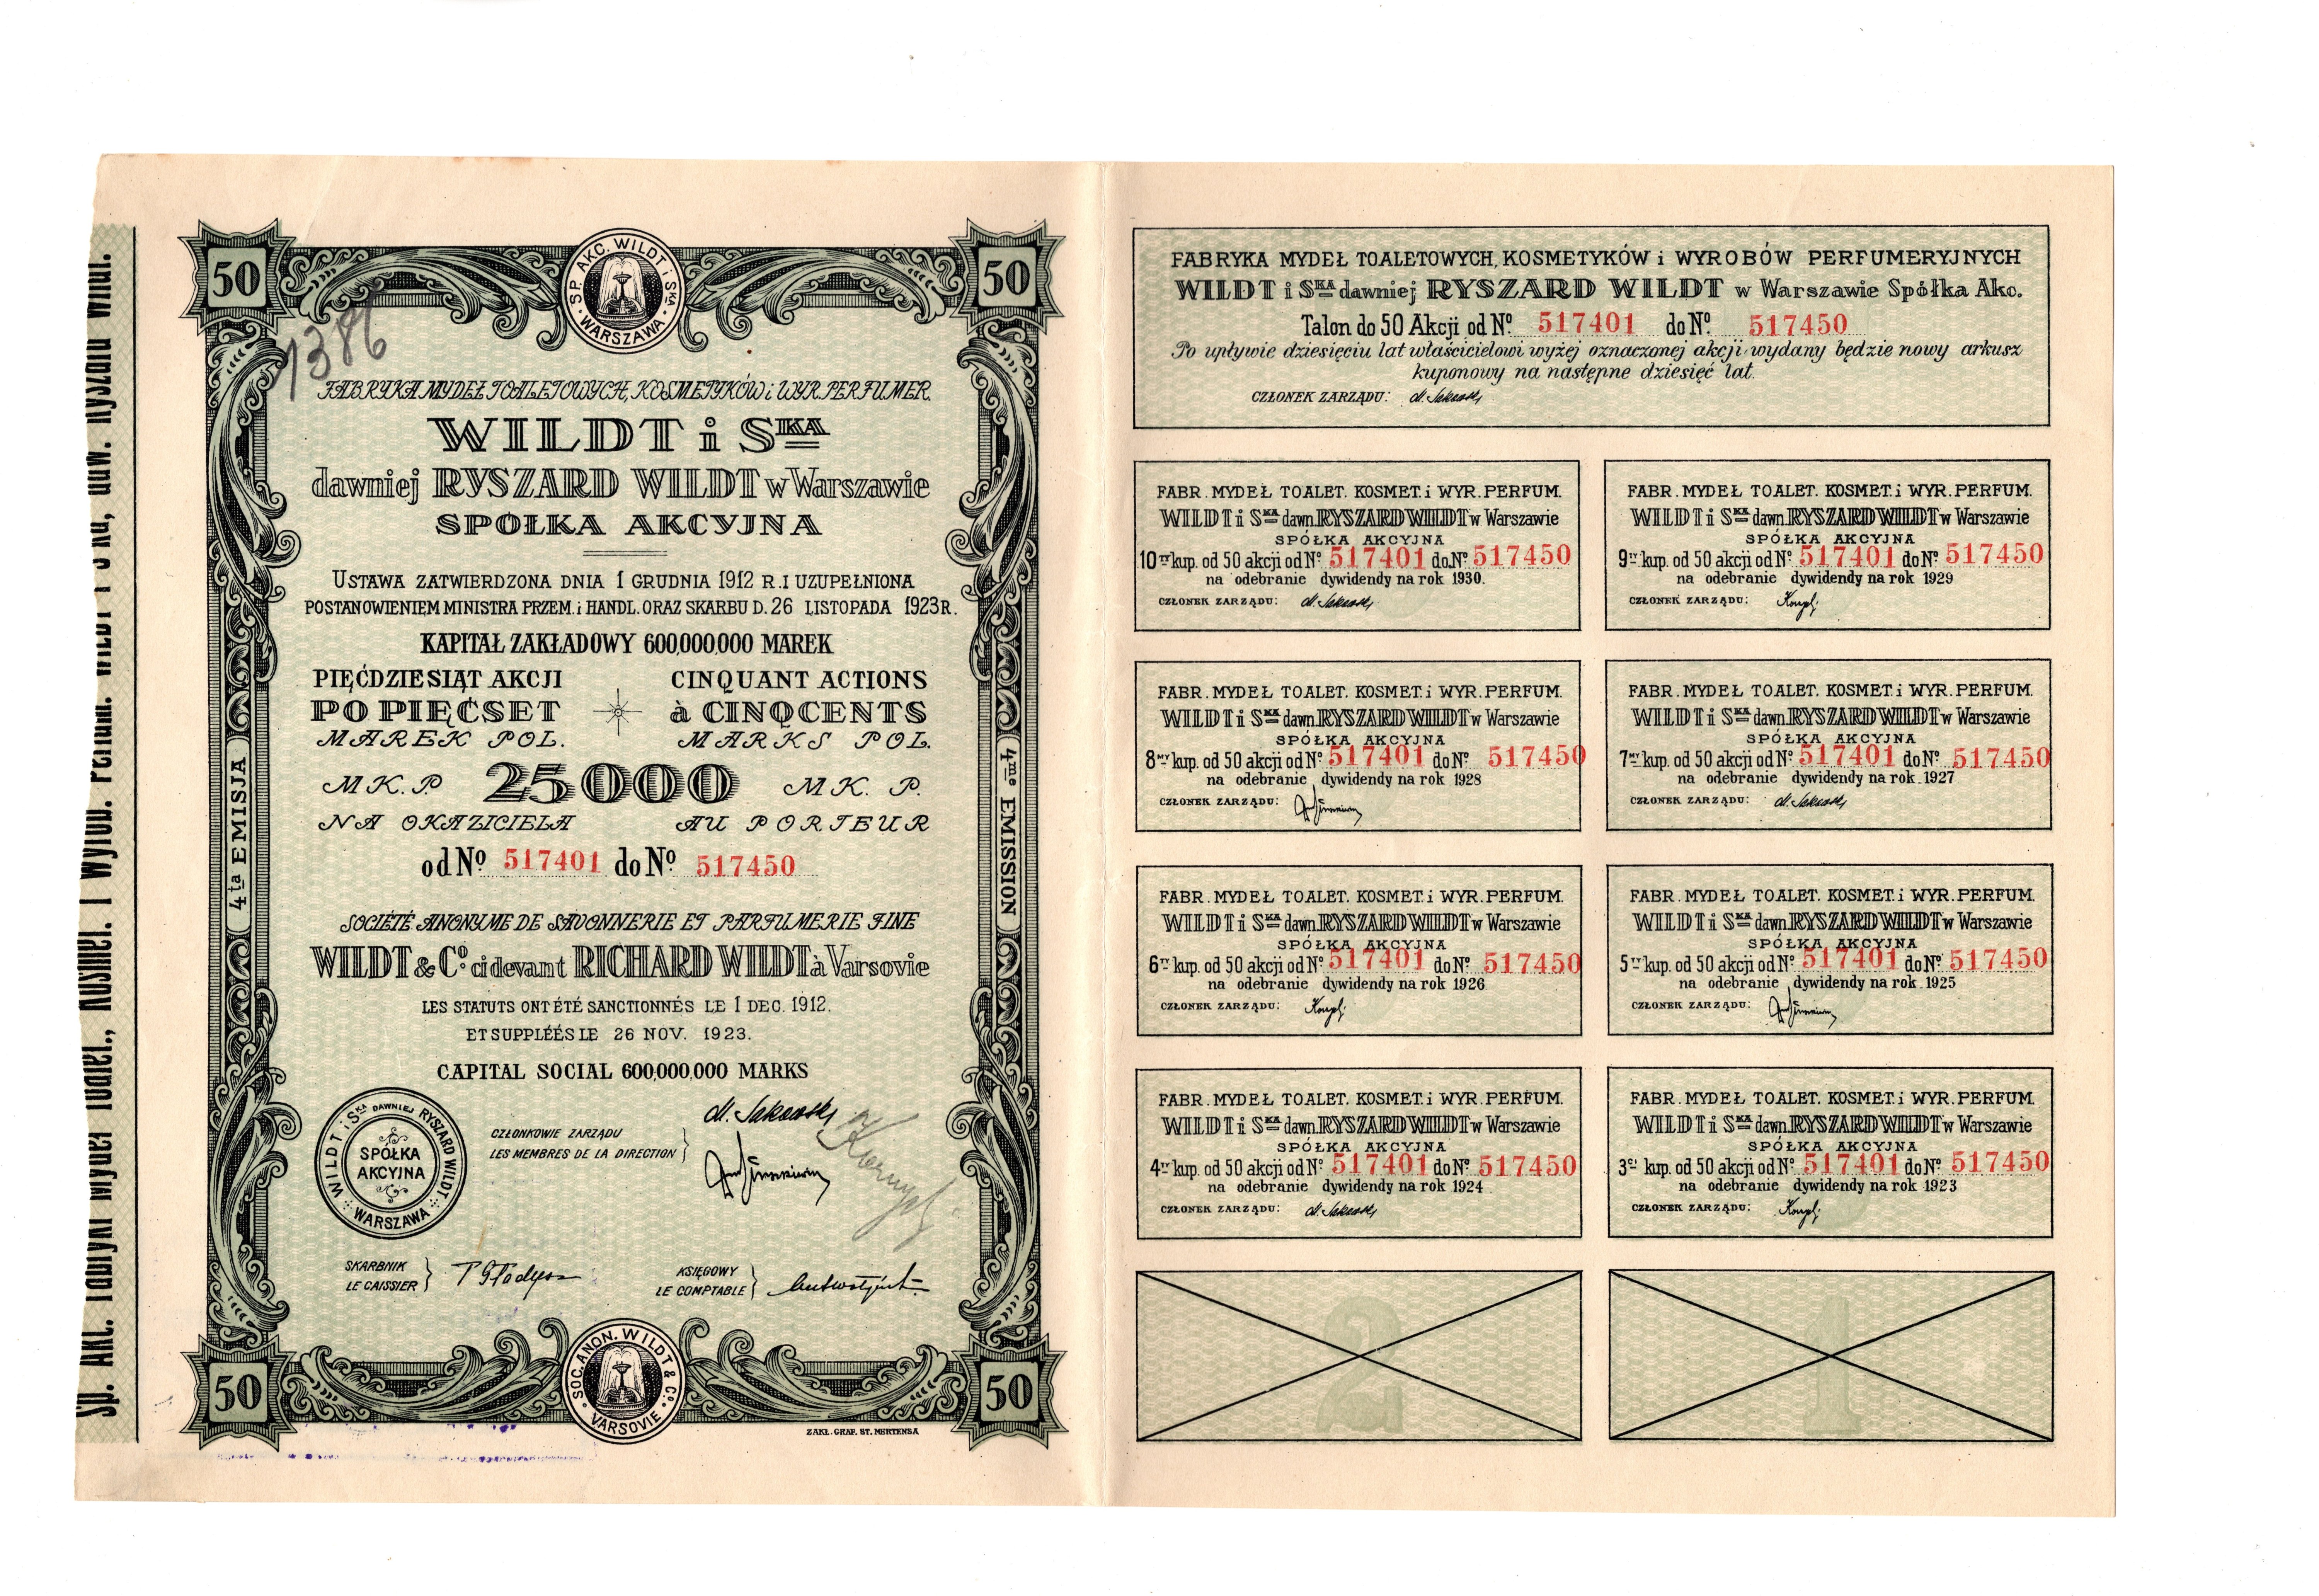 50
SP. AKC. WILDT i SKA WARSZAWA
50
1386
FABRYKA MYDEŁ TOALETOWYCH, KOSMETYKÓW i WYR. PERFUMER.
WILDT i SKA
dawniej RYSZARD WILDT w Warszawie
SPÓŁKA AKCYJNA
USTAWA ZATWIERDZONA DNIA 1 GRUDNIA 1912 R. I UZUPEŁNIONA
POSTANOWIENIEM MINISTRA PRZEM. i HANDL. ORAZ SKARBU D. 26 LISTOPADA 1923 R.
KAPITAŁ ZAKŁADOWY 600,000,000 MAREK
PIĘĆDZIESIĄT AKCJI CINQUANT ACTIONS
PO PIĘĆSET à CINQCENTS
MAREK POL. MARKS POL.
MK. P. 25000 MK. P.
NA OKAZICIELA AU PORTEUR
od No 517401 do No 517450
4ta EMISJA
4me EMISSION
SOCIÉTÉ ANONYME DE SAVONNERIE ET PARFUMERIE FINE
WILDT & Co. ci devant RICHARD WILDT à Varsovie
LES STATUTS ONT ÉTÉ SANCTIONNÉS LE 1 DEC. 1912.
ET SUPPLÉÉS LE 26 NOV. 1923.
CAPITAL SOCIAL 600,000,000 MARKS
WILDT i SKA DAWNIEJ RYSZARD WILDT WARSZAWA
SPÓŁKA
AKCYJNA
CZŁONKOWIE ZARZĄDU
LES MEMBRES DE LA DIRECTION
SKARBNIK
LE CAISSIER
KSIĘGOWY
LE COMPTABLE
50
SOC. ANON. WILDT & Co. VARSOVIE
50
ZAKŁ. GRAF. ST. MERTENSA
FABRYKA MYDEŁ TOALETOWYCH, KOSMETYKÓW i WYROBÓW PERFUMERYJNYCH
WILDT i SKA dawniej RYSZARD WILDT w Warszawie Spółka Akc.
Talon do 50 Akcji od No. 517401 do No. 517450
Po upływie dziesięciu lat właścicielowi wyżej oznaczonej akcji wydany będzie nowy arkusz
kuponowy na następne dziesięć lat.
CZŁONEK ZARZĄDU:
FABR. MYDEŁ TOALET. KOSMET. i WYR. PERFUM.
WILDT i SKA dawn. RYSZARD WILDT w Warszawie
SPÓŁKA AKCYJNA
10ty kup. od 50 akcji od No 517401 do No 517450
na odebranie dywidendy na rok 1930.
CZŁONEK ZARZĄDU:
FABR. MYDEŁ TOALET. KOSMET. i WYR. PERFUM.
WILDT i SKA dawn. RYSZARD WILDT w Warszawie
SPÓŁKA AKCYJNA
9ty kup. od 50 akcji od No 517401 do No 517450
na odebranie dywidendy na rok 1929
CZŁONEK ZARZĄDU:
FABR. MYDEŁ TOALET. KOSMET. i WYR. PERFUM.
WILDT i SKA dawn. RYSZARD WILDT w Warszawie
SPÓŁKA AKCYJNA
8my kup. od 50 akcji od No 517401 do No 517450
na odebranie dywidendy na rok 1928
CZŁONEK ZARZĄDU:
FABR. MYDEŁ TOALET. KOSMET. i WYR. PERFUM.
WILDT i SKA dawn. RYSZARD WILDT w Warszawie
SPÓŁKA AKCYJNA
7my kup. od 50 akcji od No 517401 do No 517450
na odebranie dywidendy na rok 1927
CZŁONEK ZARZĄDU:
FABR. MYDEŁ TOALET. KOSMET. i WYR. PERFUM.
WILDT i SKA dawn. RYSZARD WILDT w Warszawie
SPÓŁKA AKCYJNA
6ty kup. od 50 akcji od No 517401 do No 517450
na odebranie dywidendy na rok 1926
CZŁONEK ZARZĄDU:
FABR. MYDEŁ TOALET. KOSMET. i WYR. PERFUM.
WILDT i SKA dawn. RYSZARD WILDT w Warszawie
SPÓŁKA AKCYJNA
5ty kup. od 50 akcji od No 517401 do No 517450
na odebranie dywidendy na rok 1925
CZŁONEK ZARZĄDU:
FABR. MYDEŁ TOALET. KOSMET. i WYR. PERFUM.
WILDT i SKA dawn. RYSZARD WILDT w Warszawie
SPÓŁKA AKCYJNA
4ty kup. od 50 akcji od No 517401 do No 517450
na odebranie dywidendy na rok 1924
CZŁONEK ZARZĄDU:
FABR. MYDEŁ TOALET. KOSMET. i WYR. PERFUM.
WILDT i SKA dawn. RYSZARD WILDT w Warszawie
SPÓŁKA AKCYJNA
3ci kup. od 50 akcji od No 517401 do No 517450
na odebranie dywidendy na rok 1923
CZŁONEK ZARZĄDU:
2
1